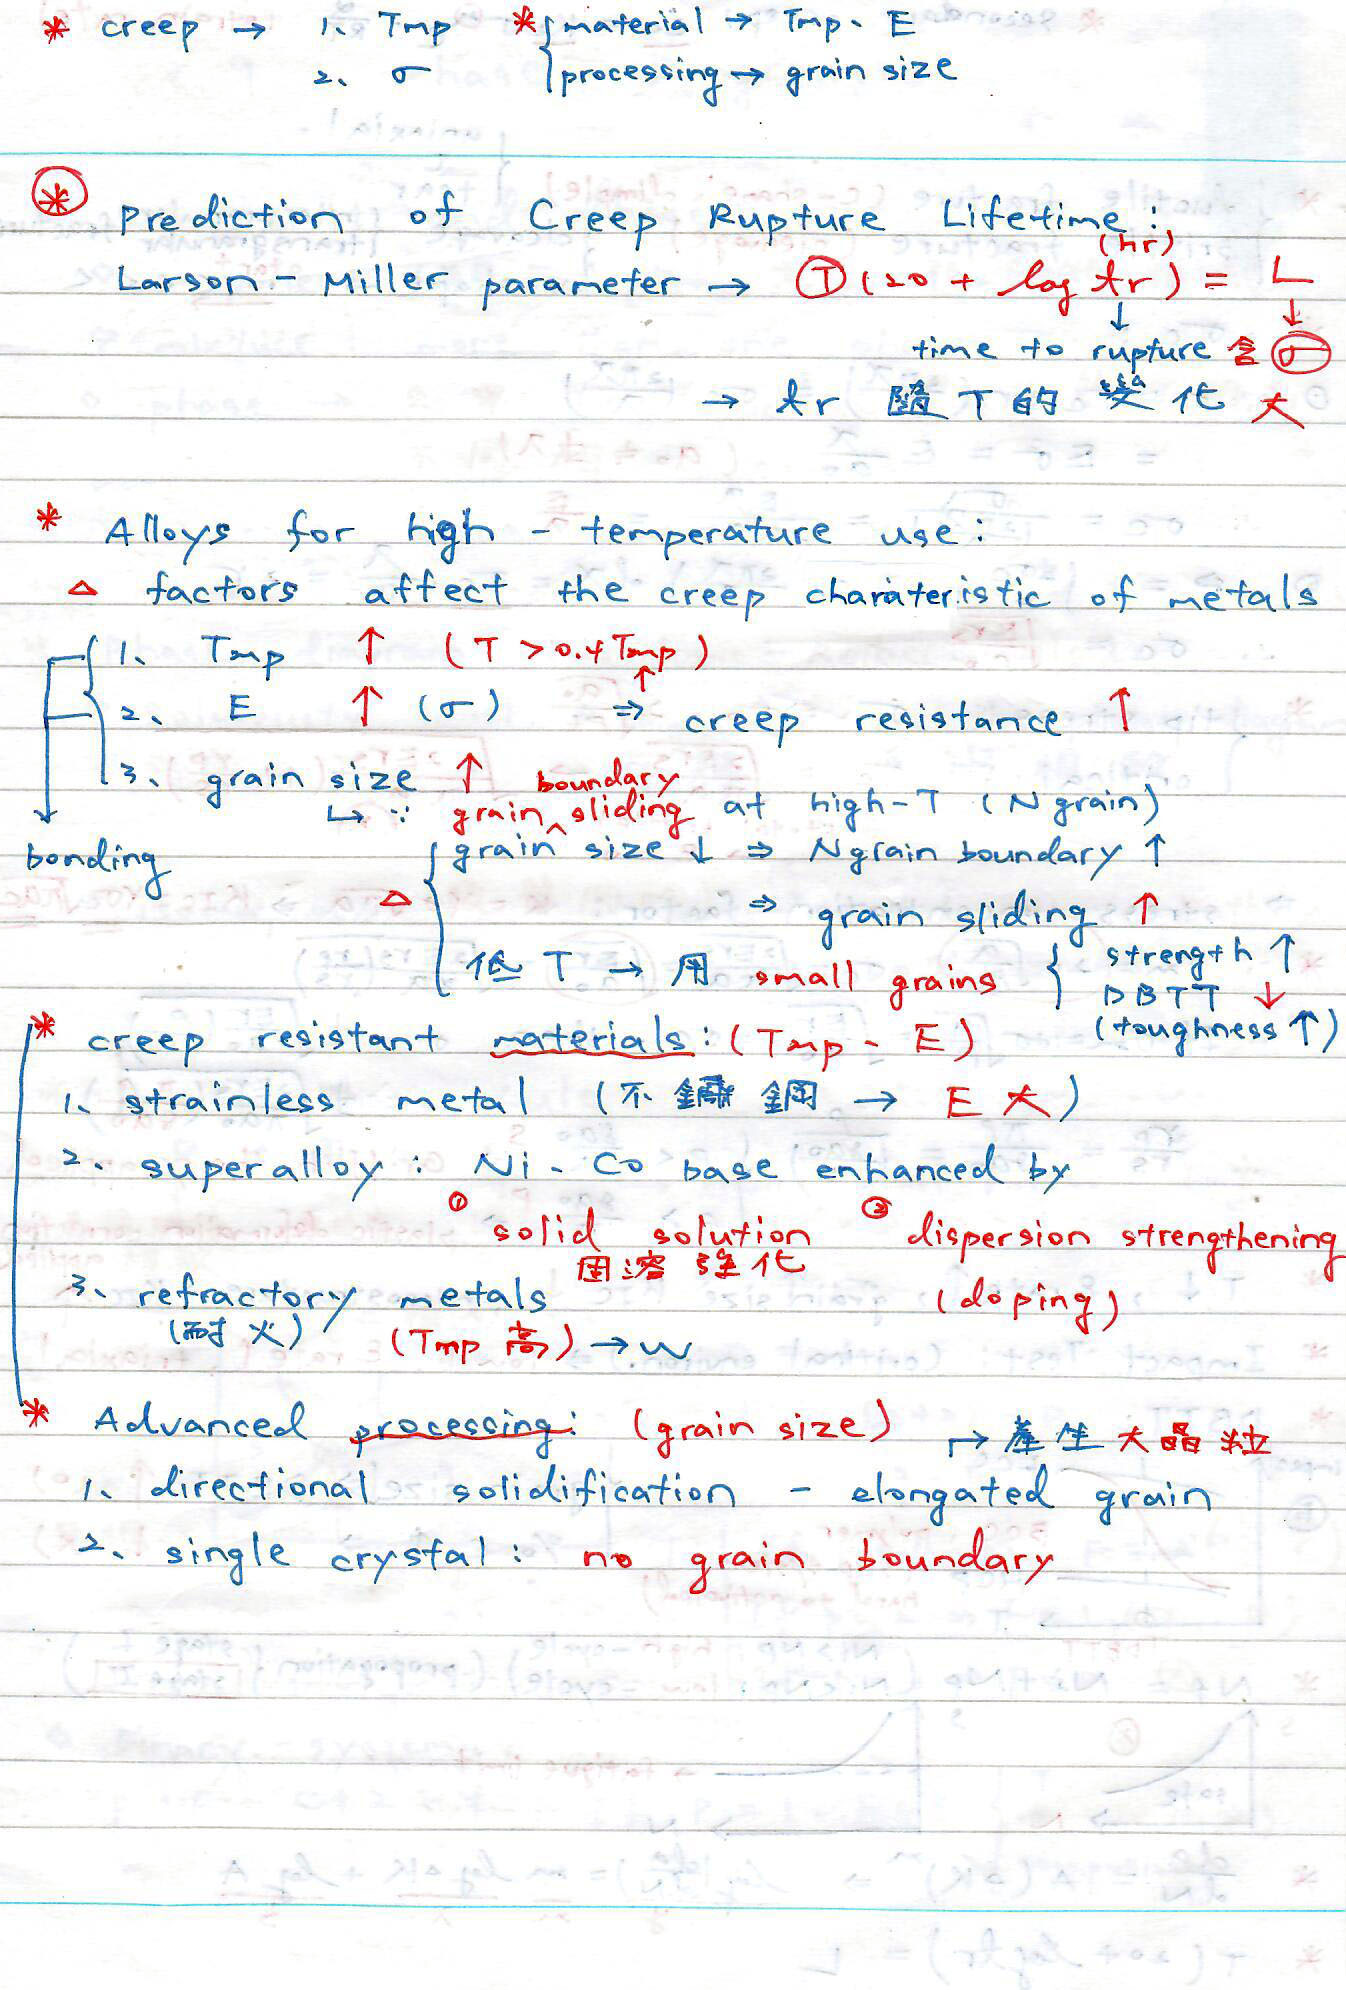 * creep → 1、 Tmp * { material → Tmp、E
2、 σ { processing → grain size
* Prediction of Creep Rupture Lifetime:
(hr)
Larson - Miller parameter → T (20 + log tr) = L
↓ ↓
time to rupture 含 σ
→ tr 隨 T 的 變 化 大
* Alloys for high - temperature use:
△ factors affect the creep charateristic of metals
1、 Tmp ↑ ( T > 0.4 Tmp )
↑
2、 E ↑ (σ) ⇒ creep resistance ↑
3、 grain size ↑ boundary
↳ ∵ grain ^ sliding at high-T (N grain)
bonding
grain size ↓ ⇒ N grain boundary ↑
△ ⇒ grain sliding ↑
低 T → 用 small grains { strength ↑
DBTT ↓
(toughness ↑)
* creep resistant materials: (Tmp、E)
1、 strainless metal (不 鏽 鋼 → E 大)
2、 superalloy: Ni、Co base enhanced by
① solid solution ② dispersion strengthening
固 溶 強 化
(doping)
3、 refractory metals
(耐 火) (Tmp 高) → W
* Advanced processing: (grain size) ↱ 產 生 大 晶 粒
1、 directional solidification - elongated grain
2、 single crystal: no grain boundary